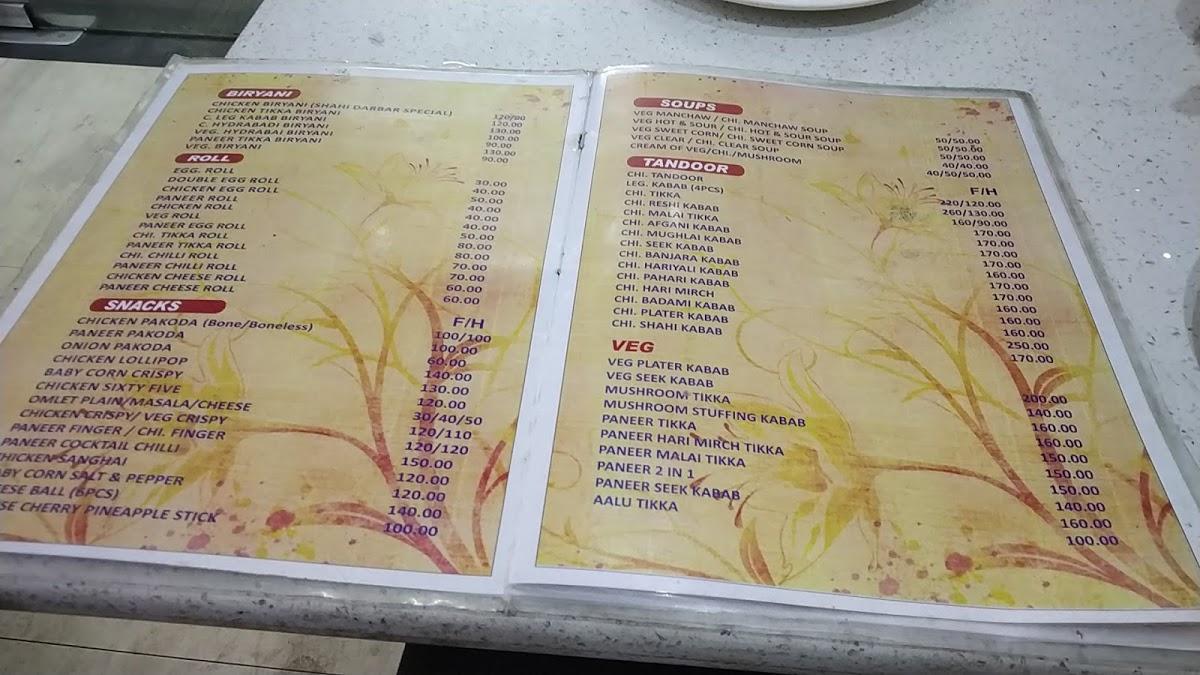 BIRYANI
CHICKEN BIRYANI (SHAHI DARBAR SPECIAL) 120/80
CHICKEN TIKKA BIRYANI 120.00
C. LEG KABAB BIRYANI 130.00
C. HYDRABADI BIRYANI 100.00
VEG. HYDRABAI BIRYANI 90.00
PANEER TIKKA BIRYANI 130.00
VEG. BIRYANI 90.00
ROLL
EGG. ROLL 30.00
DOUBLE EGG ROLL 40.00
CHICKEN EGG ROLL 50.00
PANEER ROLL 40.00
CHICKEN ROLL 40.00
VEG ROLL 40.00
PANEER EGG ROLL 50.00
CHI. TIKKA ROLL 80.00
PANEER TIKKA ROLL 80.00
CHI. CHILLI ROLL 70.00
PANEER CHILLI ROLL 70.00
CHICKEN CHEESE ROLL 60.00
PANEER CHEESE ROLL 60.00
SNACKS F/H
CHICKEN PAKODA (Bone/Boneless) 100/100
PANEER PAKODA 100.00
ONION PAKODA 60.00
CHICKEN LOLLIPOP 140.00
BABY CORN CRISPY 130.00
CHICKEN SIXTY FIVE 120.00
OMLET PLAIN/MASALA/CHEESE 30/40/50
CHICKEN CRISPY/ VEG CRISPY 120/110
PANEER FINGER / CHI. FINGER 120/120
PANEER COCKTAIL CHILLI 150.00
CHICKEN SANGHAI 120.00
ABY CORN SALT & PEPPER 120.00
ESE BALL (6PCS) 140.00
SE CHERRY PINEAPPLE STICK 100.00
SOUPS
VEG MANCHAW / CHI. MANCHAW SOUP 50/50.00
VEG HOT & SOUR / CHI. HOT & SOUR SOUP 50/50.00
VEG SWEET CORN/ CHI. SWEET CORN SOUP 50/50.00
VEG CLEAR / CHI. CLEAR SOUP 40/40.00
CREAM OF VEG/CHI./MUSHROOM 40/50/50.00
TANDOOR F/H
CHI. TANDOOR 220/120.00
LEG. KABAB (4PCS) 260/130.00
CHI. TIKKA 160/90.00
CHI. RESHI KABAB 170.00
CHI. MALAI TIKKA 170.00
CHI. AFGANI KABAB 170.00
CHI. MUGHLAI KABAB 170.00
CHI. SEEK KABAB 160.00
CHI. BANJARA KABAB 170.00
CHI. HARIYALI KABAB 170.00
CHI. PAHARI KABAB 160.00
CHI. HARI MIRCH 160.00
CHI. BADAMI KABAB 160.00
CHI. PLATER KABAB 250.00
CHI. SHAHI KABAB 170.00
VEG
VEG PLATER KABAB 200.00
VEG SEEK KABAB 140.00
MUSHROOM TIKKA 160.00
MUSHROOM STUFFING KABAB 160.00
PANEER TIKKA 150.00
PANEER HARI MIRCH TIKKA 150.00
PANEER MALAI TIKKA 150.00
PANEER 2 IN 1 140.00
PANEER SEEK KABAB 160.00
AALU TIKKA 100.00